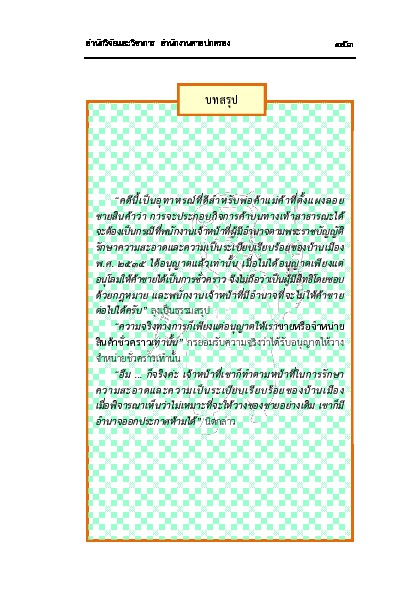 สำนักวิจัยและวิชาการ สำนักงานศาลปกครอง
บทสรุป
"คดีนี้เป็นอุทาหรณ์ที่ดีสำหรับพ่อค้าแม่ค้าที่ตั้งแผงลอย
ขายสินค้าว่า การจะประกอบกิจการค้าบนทางเท้าสาธารณะได้
จะต้องเป็นกรณีที่พนักงานเจ้าหน้าที่ผู้มีอำนาจตามพระราชบัญญัติ
รักษาความสะอาดและความเป็นระเบียบเรียบร้อยของบ้านเมือง
พ.ศ. ๒๕๓๕ ได้อนุญาตแล้วเท่านั้น เมื่อไม่ได้อนุญาตเพียงแต่
อนุโลมให้ค้าขายได้เป็นการชั่วคราว จึงไม่ถือว่าเป็นผู้มีสิทธิโดยชอบ
ด้วยกฎหมาย และพนักงานเจ้าหน้าที่มีอำนาจที่จะไม่ให้ค้าขาย
ต่อไปได้ครับ" ลุงเป็นธรรมสรุป
"ความจริงทางการก็เพียงแต่อนุญาตให้เราขายหรือจำหน่าย
สินค้าชั่วคราวเท่านั้น" กรยอมรับความจริงว่าได้รับอนุญาตให้วาง
จำหน่ายชั่วคราวเท่านั้น
"อืม ... ก็จริงค่ะ เจ้าหน้าที่เขาก็ทำตามหน้าที่ในการรักษา
ความสะอาดและความเป็นระเบียบเรียบร้อยของบ้านเมือง
เมื่อพิจารณาเห็นว่าไม่เหมาะที่จะให้วางของขายอย่างเดิม เขาก็มี
อำนาจออกประกาศห้ามได้" นิดกล่าว